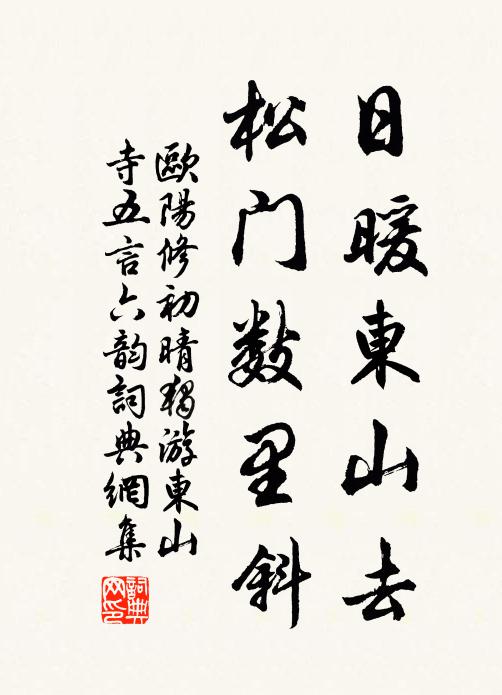 日暖東山去
松门数里斜
歐陽修初晴獨游東山
寺五言六韵詞典網集
詞典网印